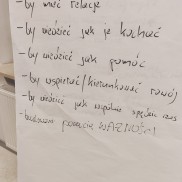 - by mieć relacje
- by wiedzieć jak je kochać
- by wiedzieć jak pomóc
- by wspierać/kierunkować rozwój
- by wiedzieć jak wspólnie spędzać czas
- budowam poczucie WAŻNOŚCI